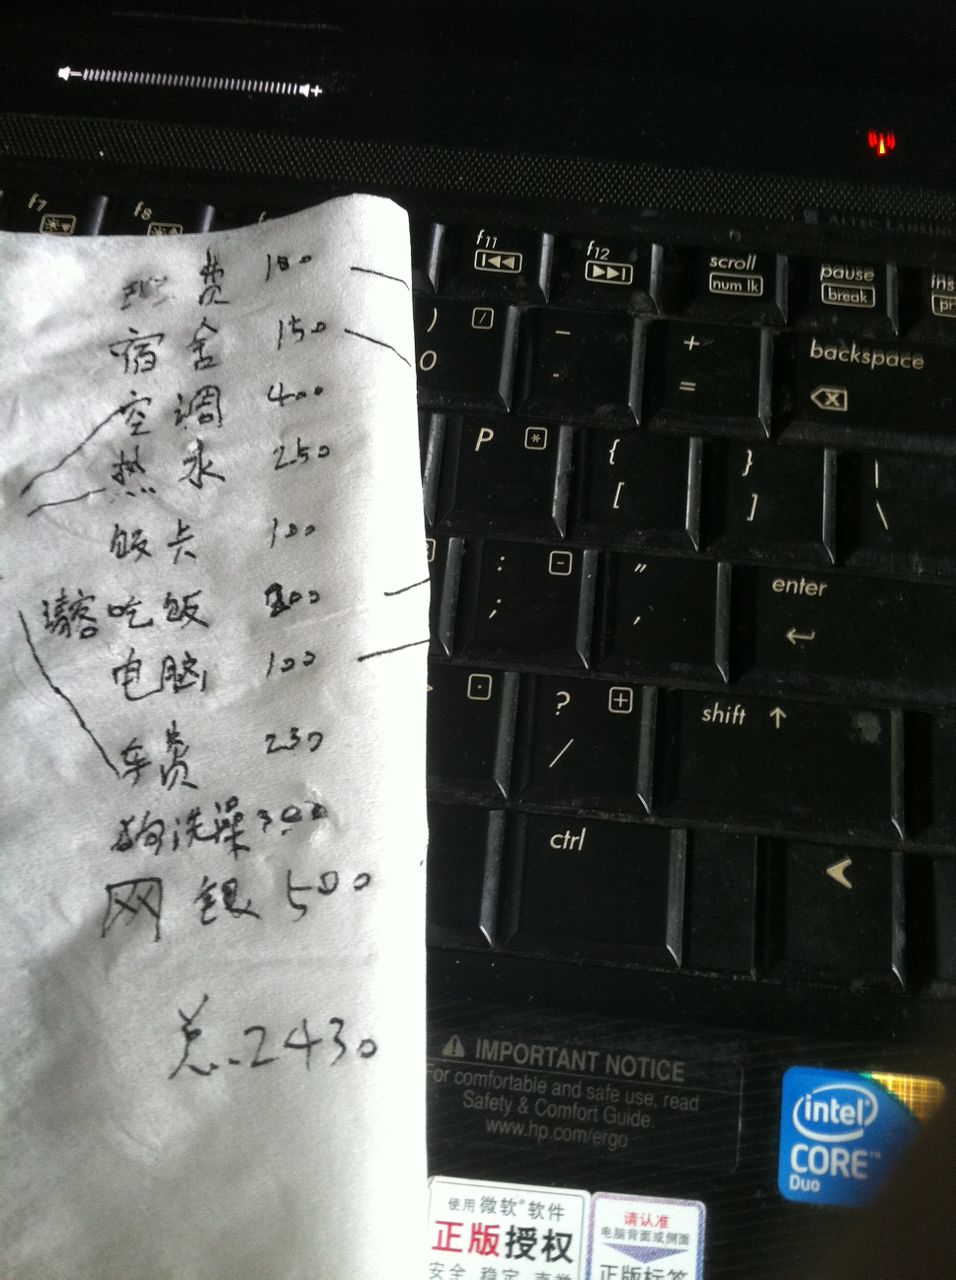 f7
f8
f11
f12
scroll
num lk
pause
break
ins
ALTEC LANSING
班费 100
宿舍 150
空调 400
热水 250
饭卡 100
请客吃饭 300
电脑 100
车费 230
狗洗澡 300
网银 500
总 2430
) /
0
_
-
+
=
backspace
P *
{
[
}
]
|
\
: -
;
"
'
enter
> .
? +
/
shift
ctrl
IMPORTANT NOTICE
For comfortable and safe use, read
Safety & Comfort Guide.
www.hp.com/ergo
intel
CORE™
Duo
使用 微软® 软件
正版授权
安全 稳定 声誉
请认准
电脑背面或侧面
正版标签